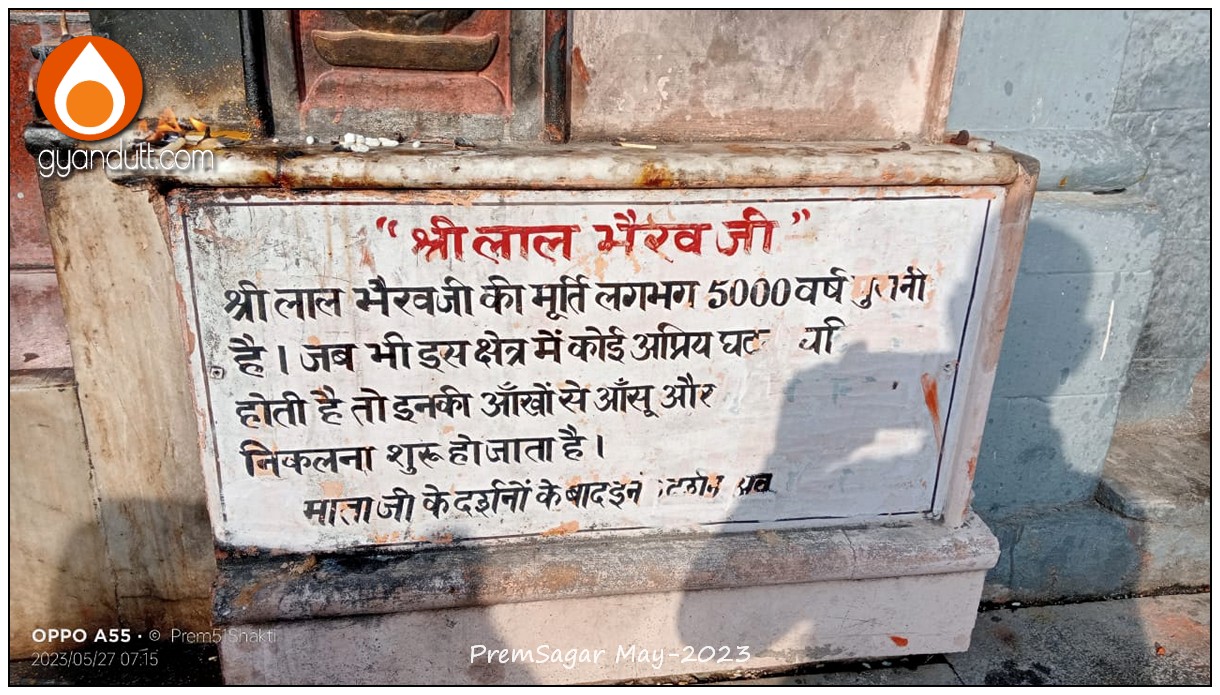 gyandutt.com
“श्री लाल भैरव जी”
श्री लाल भैरवजी की मूर्ति लगभग 5000 वर्ष
है । जब भी इस क्षेत्र में कोई अप्रिय
होती है तो इनकी आँखों से आँसू और
निकलना शुरू हो जाता है ।
माता जी के दर्शनों के बाद
OPPO A55 · © Prem5 Shakti
2023/05/27 07:15
PremSagar May-2023